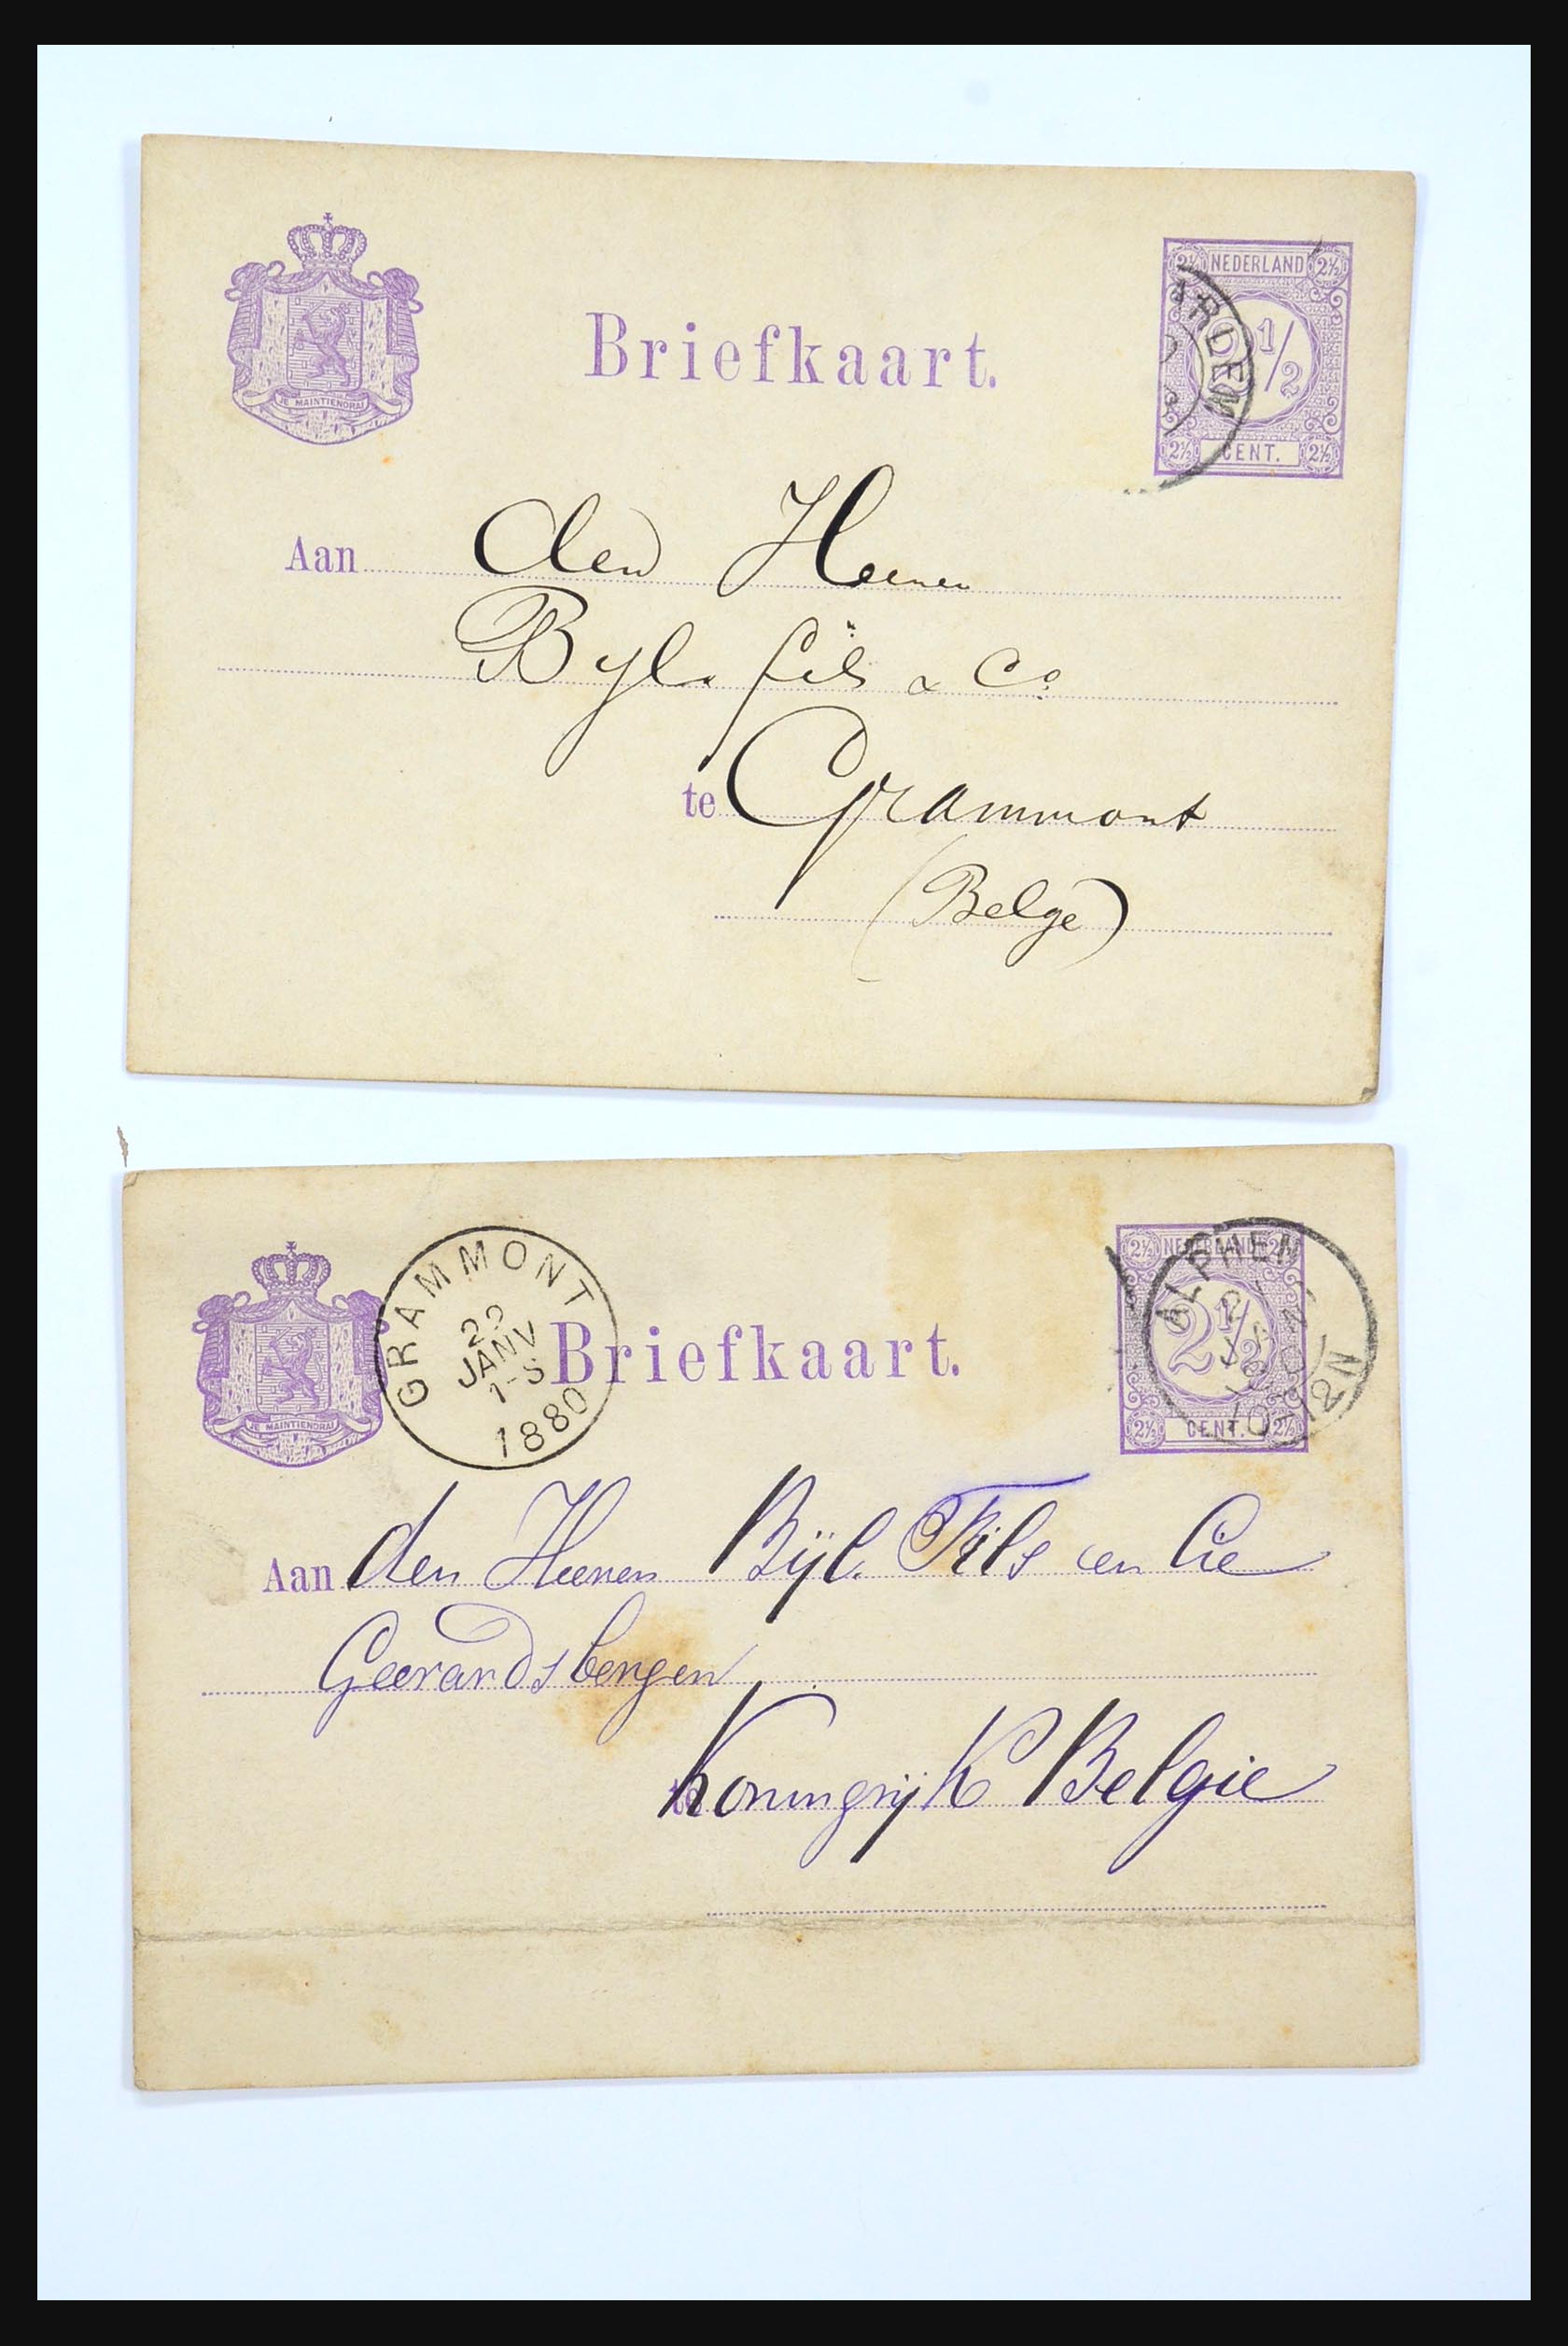 JE MAINTIENDRAI
Briefkaart.
2½ NEDERLAND 2½
2 1/2
2½ CENT. 2½
ARLEM
Aan den Heeren
Byl. fils & Co
te Grammont
(Belge)
JE MAINTIENDRAI
GRAMMONT
JANV
1880
Briefkaart.
2½ NEDERLAND 2½
2 1/2
2½ CENT. 2½
ALPHEN
Aan den Heeren Bijl. Fils en Cie
Geerardsbergen
te Koningrijk Belgie